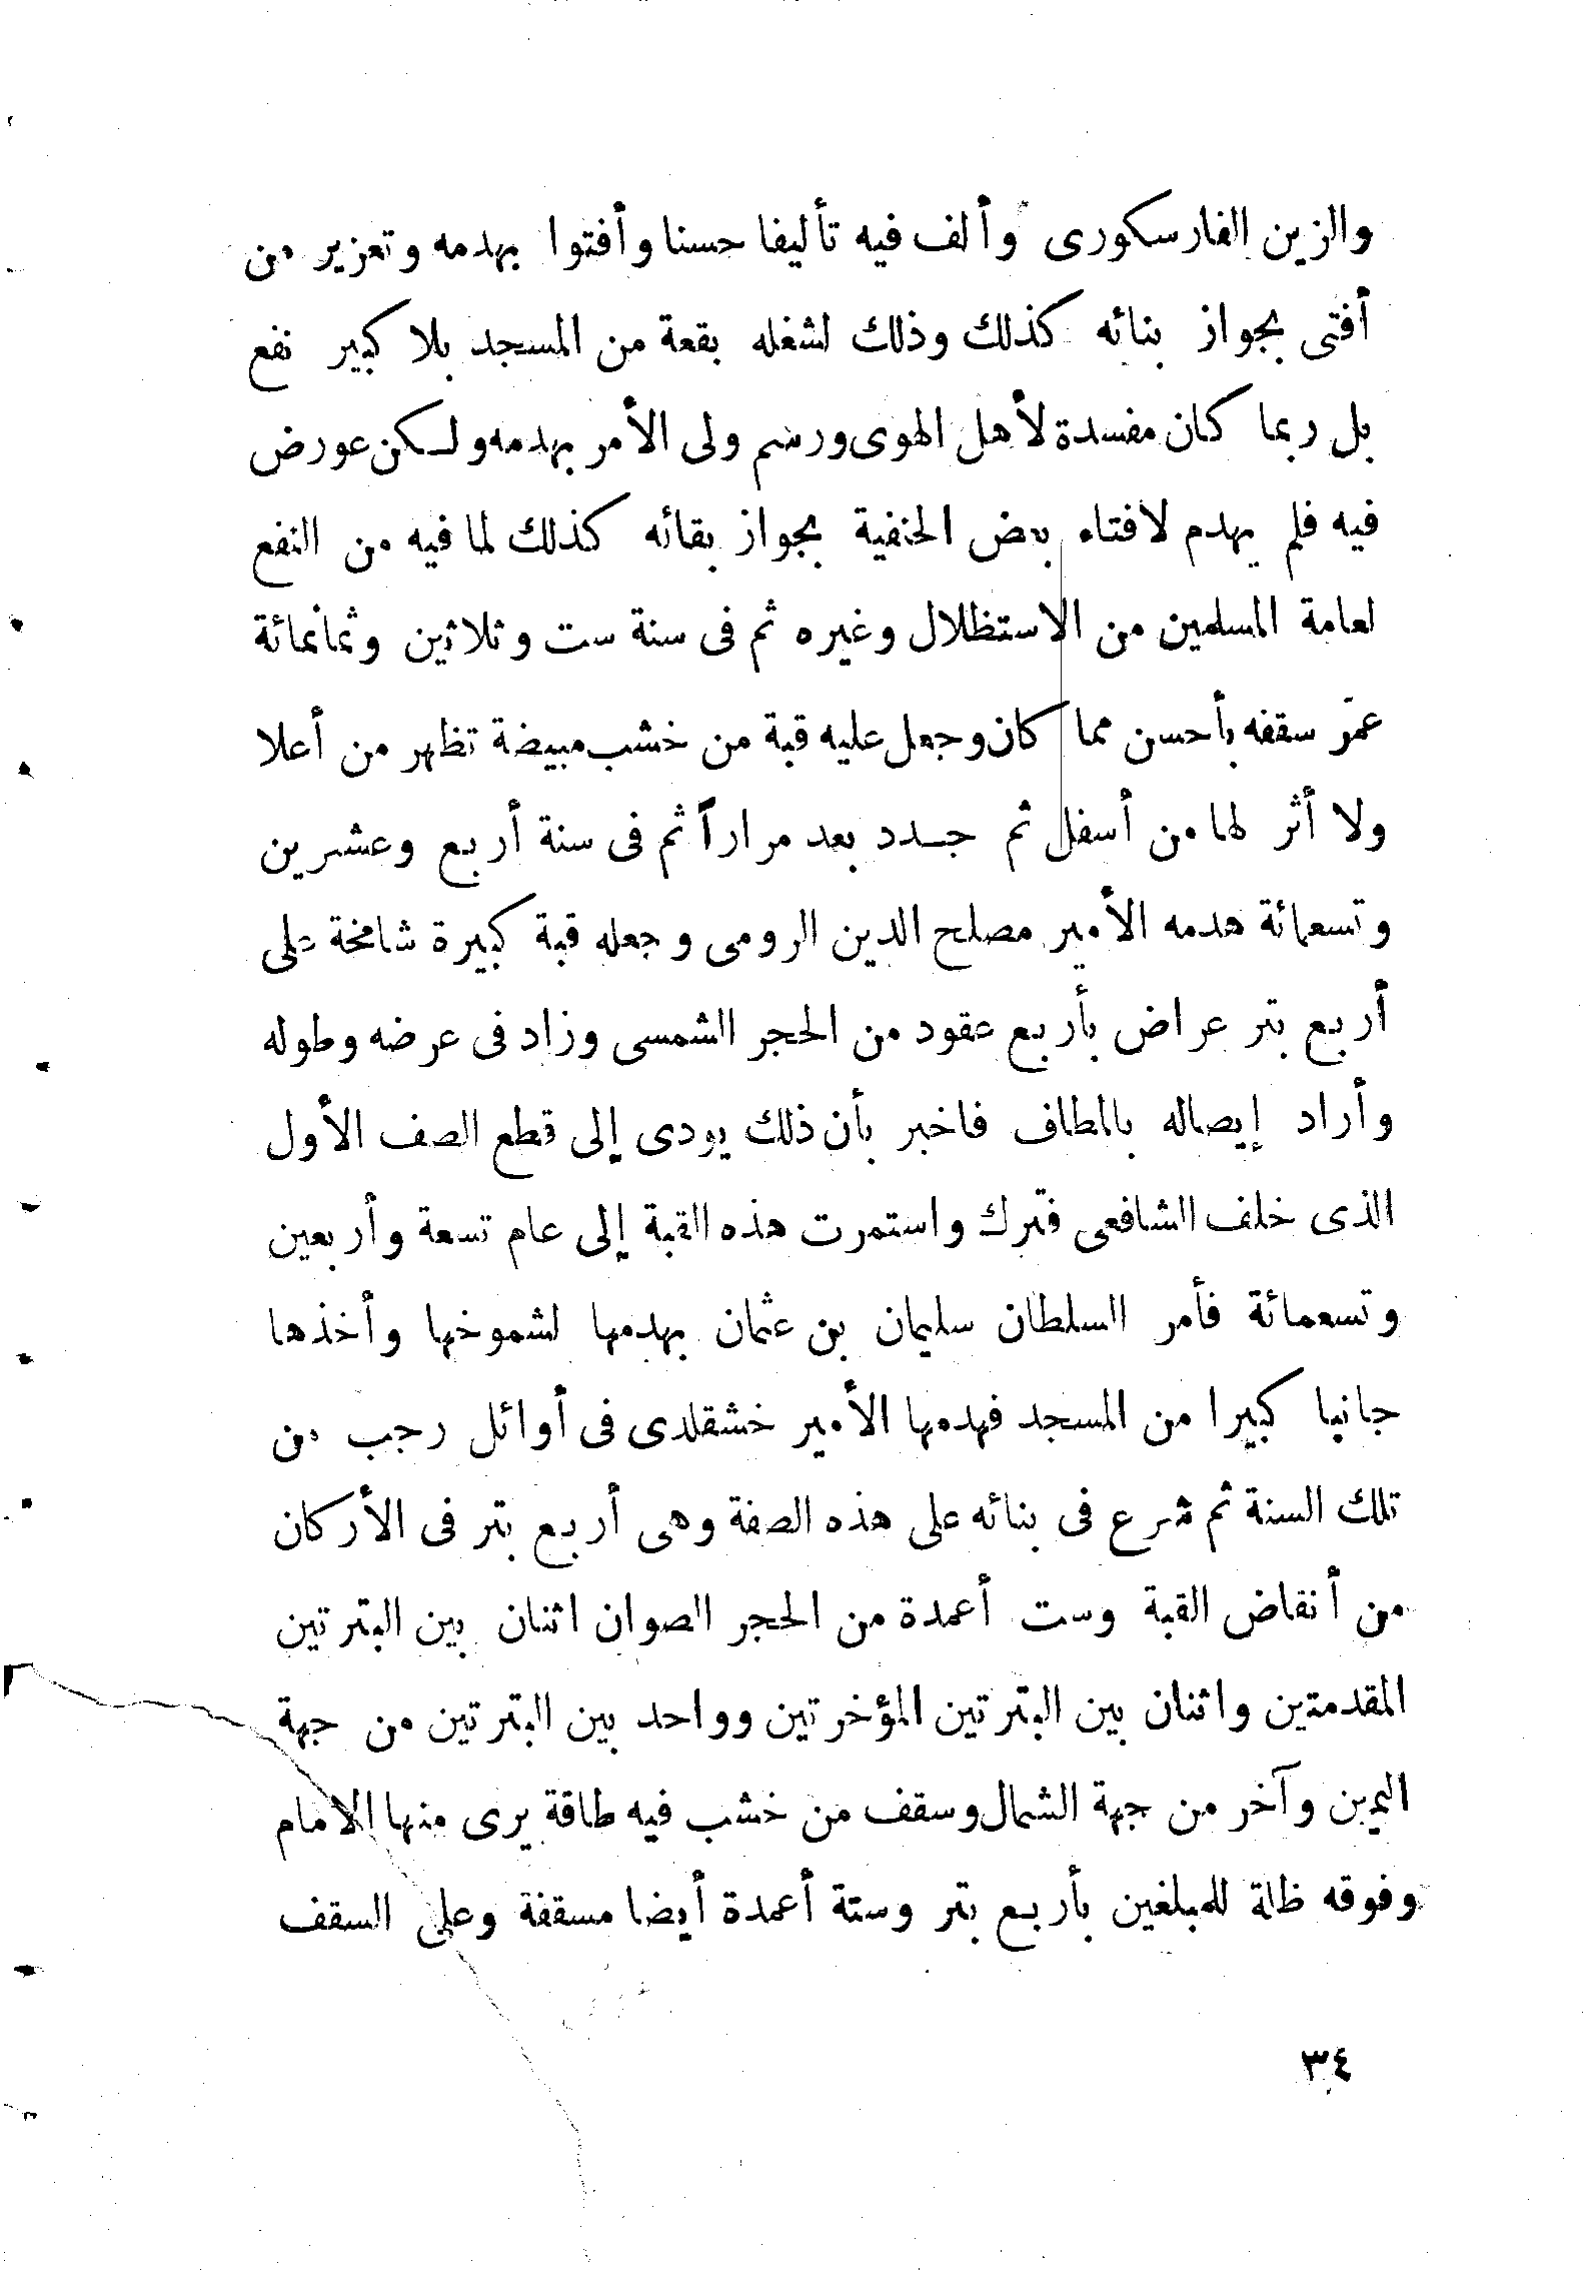 والزين الفارسكورى وألف فيه تأليفا حسنا وأفتوا بهدمه وتعزير من
أفتى بجواز بنائه كذلك وذلك لشغله بقعة من المسجد بلا كبير نفع
بل ربما كان مفسدة لأهل الهوى ورسم ولى الأمر بهدمه ولـكن عورض
فيه فلم يهدم لافتاء بعض الحنفية بجواز بقائه كذلك لما فيه من النفع
لعامة المسلمين من الاستظلال وغيره ثم فى سنة ست وثلاثين وثمانمائة
عمّر سقفه بأحسن مما كان وجعل عليه قبة من خشب مبيضة تظهر من أعلا
ولا أثر لها من أسفل ثم جـدد بعد مراراً ثم فى سنة أربع وعشرين
وتسعمائة هدمه الأمير مصلح الدين الرومى وجعله قبة كبيرة شامخة على
أربع بتر عراض بأربع عقود من الحجر الشمسى وزاد فى عرضه وطوله
وأراد إيصاله بالمطاف فاخبر بأن ذلك يودى إلى قطع الصف الأول
الذى خلف الشافعى فترك واستمرت هذه القبة إلى عام تسعة وأربعين
وتسعمائة فأمر السلطان سليمان بن عثمان بهدمها لشموخها وأخذها
جانبا كبيرا من المسجد فهدمها الأمير خشقلدى فى أوائل رجب من
تلك السنة ثم شرع فى بنائه على هذه الصفة وهى أربع بتر فى الأركان
من أنقاض القبة وست أعمدة من الحجر الصوان اثنان بين البترتين
المقدمتين واثنان بين البترتين المؤخرتين وواحد بين البترتين من جهة
اليمين وآخر من جهة الشمال وسقف من خشب فيه طاقة يرى منها الامام
وفوقه ظلة للمبلغين بأربع بتر وستة أعمدة أيضا مسقفة وعلى السقف
٣٤